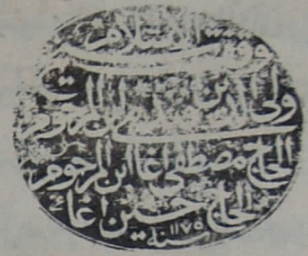 وقف
ولي الدين ابن المرحوم
الحاج مصطفى اغا ابن المرحوم
الحاج حسين اغا
سنة ١١٧٥